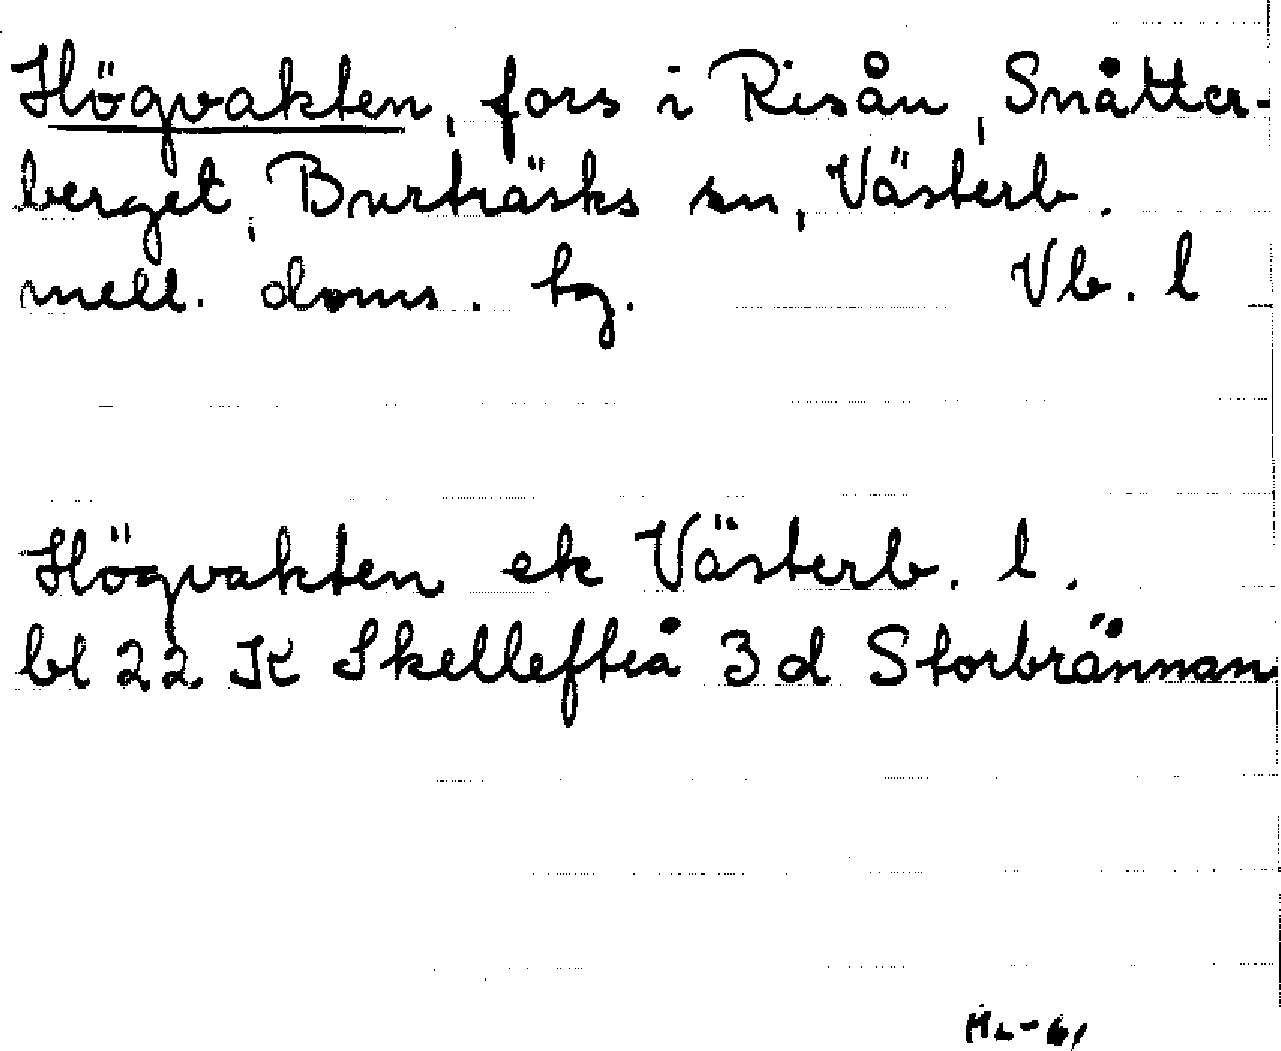 Högvakten, fors i Risån, Snåtter-
berget, Burträsks sn, Västerb.
mell. doms. hg. Vb. l
Högvakten ek Västerb. l.
bl 22 K Skellefteå 3 d Storbrännan
HL-61